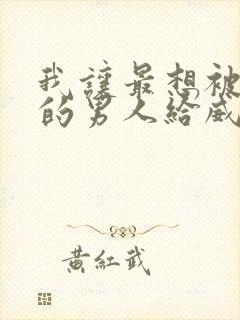 我讓最想被
的男人給威
黃紅武